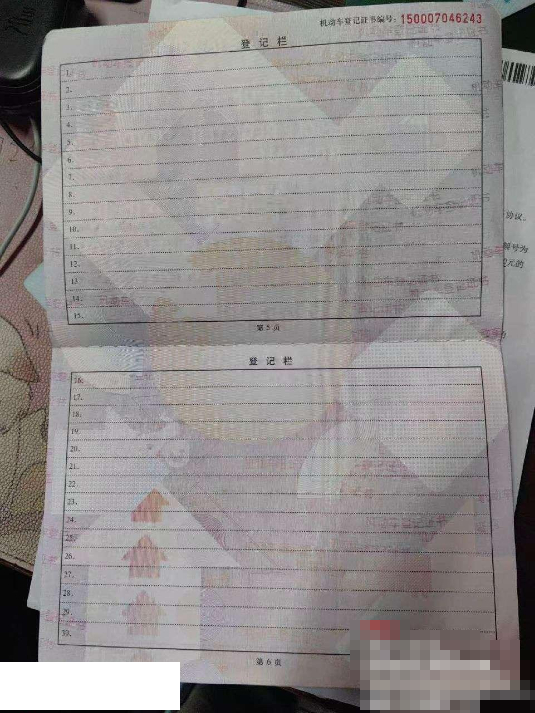 机动车登记证书编号：150007046243
登 记 栏
1.
2.
3.
4.
5.
6.
7.
8.
9.
10.
11.
12.
13.
14.
15.
第 5 页
登 记 栏
16.
17.
18.
19.
20.
21.
22.
23.
24.
25.
26.
27.
28.
29.
30.
第 6 页
协议。
号为
元的